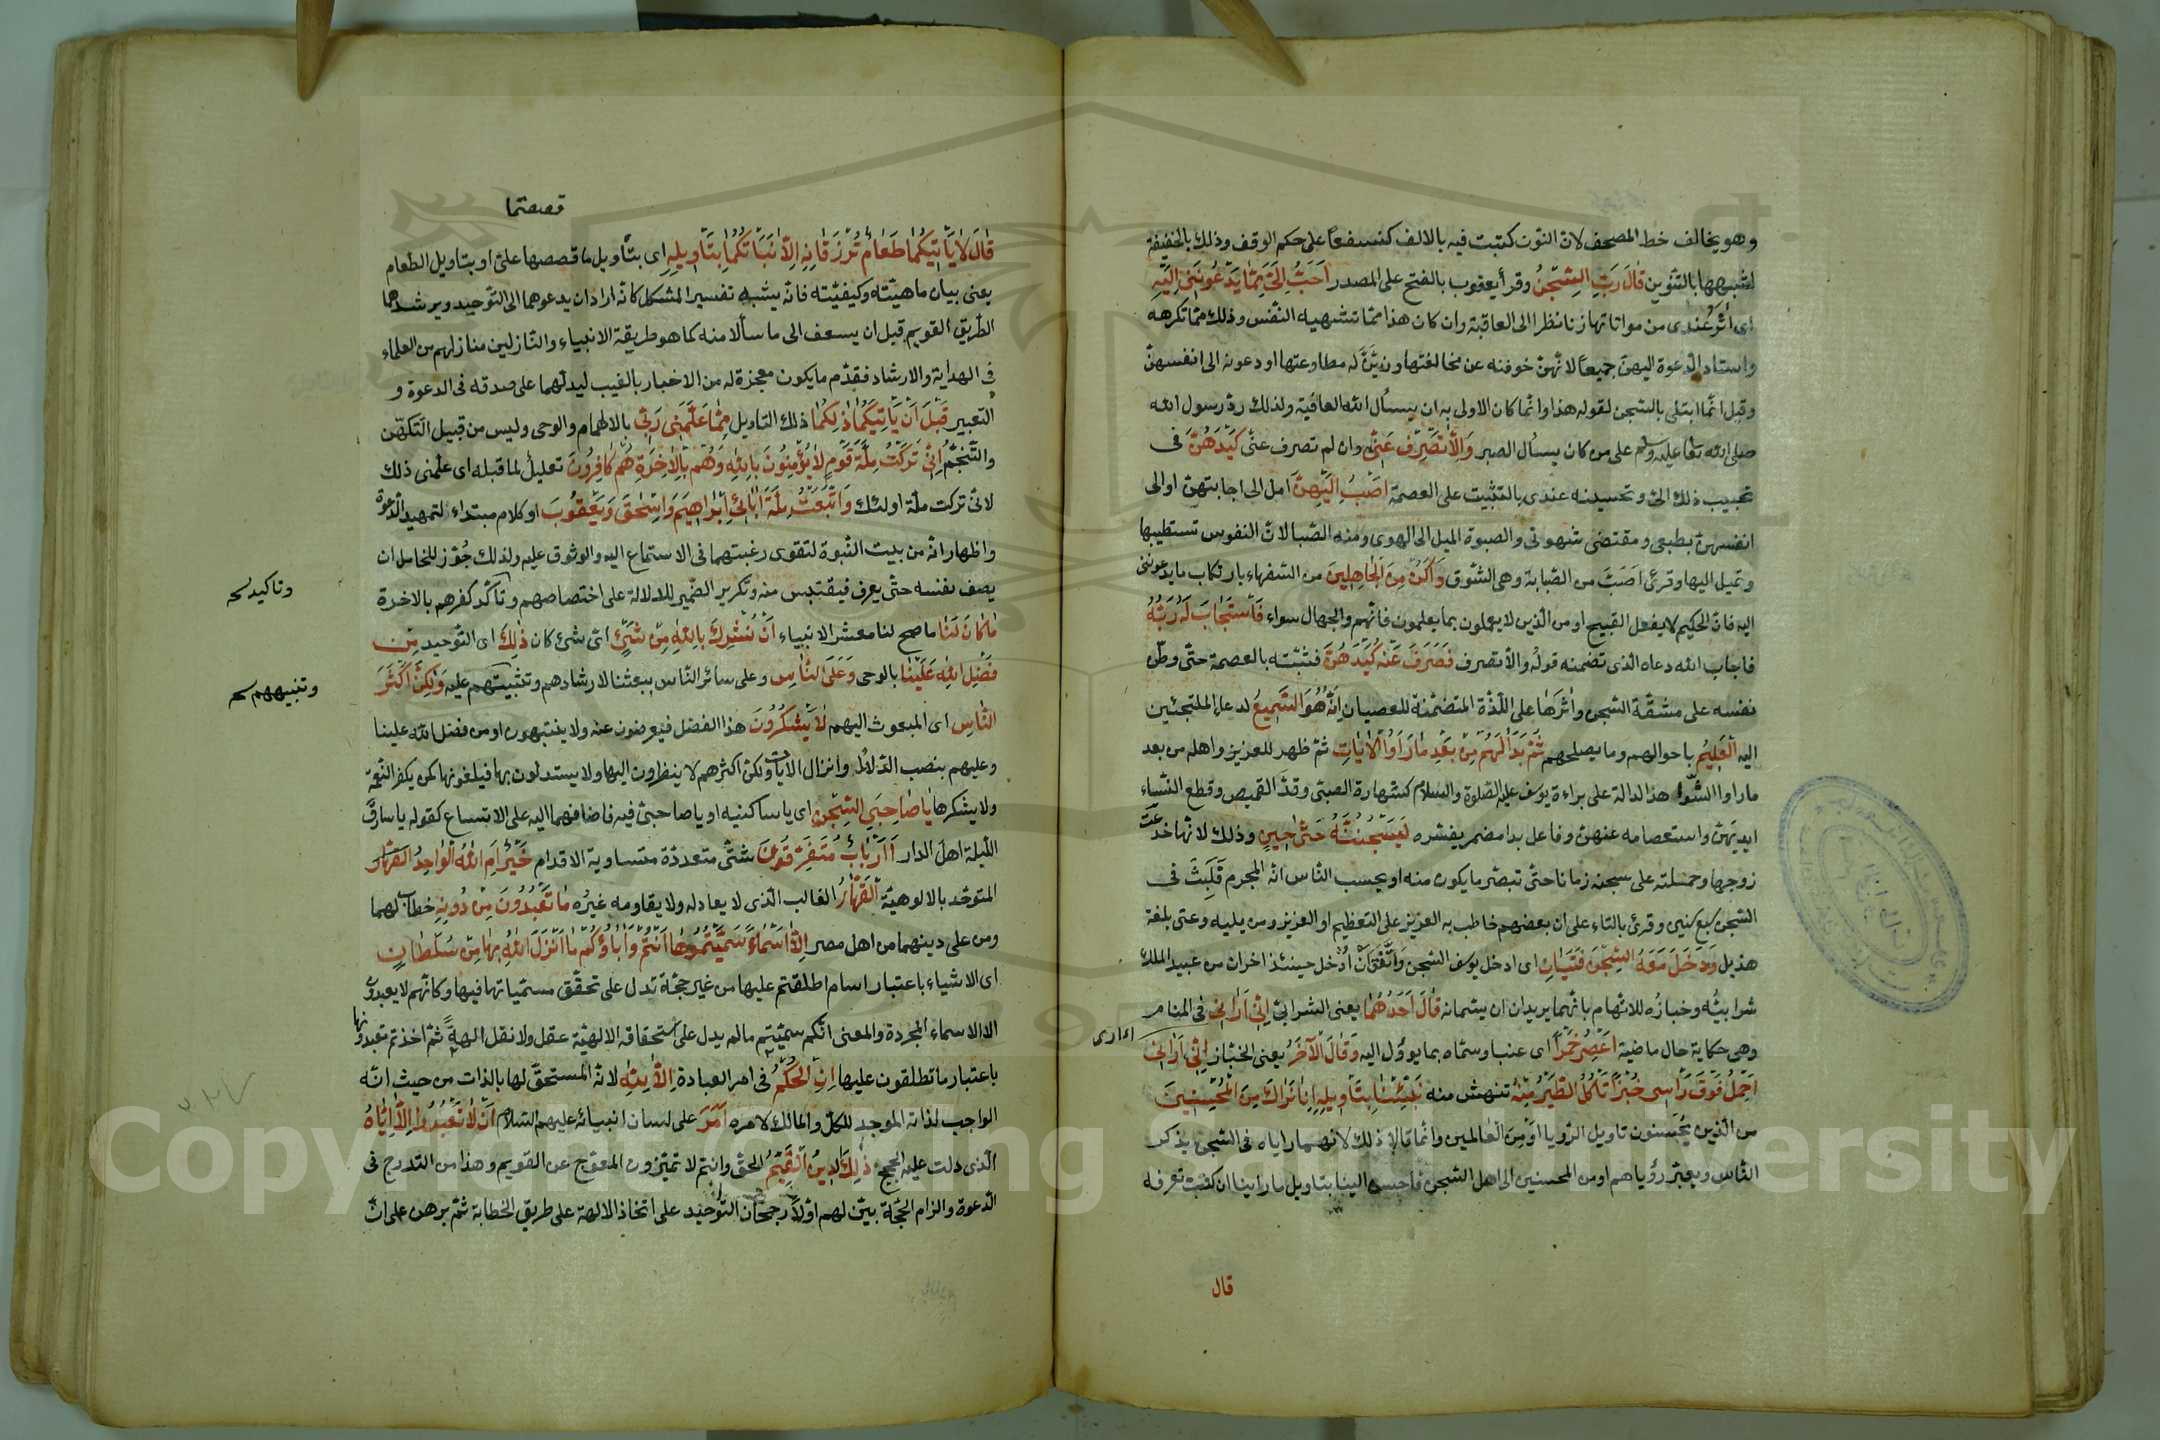 وهو يخالف خط المصحف لان النون كتبت فيه بالالف كنسفعا على حكم الوقف وذلك بالخفيفة
لشبهها بالتنوين قَالَ رَبِّ السِّجْنُ وقرأ يعقوب بالفتح على المصدر اَحَبُّ اِلَىَّ مِمَّا يَدْعُونَنِى اِلَيْهِ
اى اثر عندى من مواتاتها زنا نظرا الى العاقبة وان كان هذا مما تشتهيه النفس وذلك مما تكرهه
واسناد الدعوة اليهن جميعا لانهن خوفنه عن مخالفتها وزين له مطاوعتها او دعونه الى انفسهن
وقيل انما ابتلى بالسجن لقوله هذا وانما كان الاولى به ان يسأل الله العافية ولذلك رد رسول الله
صلى الله تعا عليه وسلم على من كان يسأل الصبر وَاِلَّا تَصْرِفْ عَنِّى وان لم تصرف عنى كَيْدَهُنَّ فى
تحبيب ذلك الى وتحسينه عندى بالتثبيت على العصمة اَصْبُ اِلَيْهِنَّ امل الى اجابتهن او الى
انفسهن بطبعى ومقتضى شهوتى والصبوة الميل الى الهوى ومنه الصبا لان النفوس تستطيبها
وتميل اليها وقرئ اَصَبَّ من الصبابة وهى الشوق وَاَكُنْ مِنَ الْجَاهِلِينَ من السفهاء بارتكاب ما يدعوننى
اليه فان الحكيم لا يفعل القبيح او من الذين لا يعملون بما يعلمون فانهم والجهال سواء فَاسْتَجَابَ لَهُ رَبُّهُ
فاجاب الله دعاه الذى تضمنه قوله والا تصرف فَصَرَفَ عَنْهُ كَيْدَهُنَّ فثبته بالعصمة حتى وطن
نفسه على مشقة السجن واثرها على اللذة المتضمنة للعصيان اِنَّهُ هُوَ السَّمِيعُ لدعاء الملتجئين
اليه الْعَلِيمُ باحوالهم وما يصلحهم ثُمَّ بَدَا لَهُمْ مِنْ بَعْدِ مَا رَاَوُا الْاٰيَاتِ ثم ظهر للعزيز واهله من بعد
ما راوا الشواهد الدالة على براءة يوسف عليه الصلوة والسلام كشهادة الصبى وقد القميص وقطع النساء
ايديهن واستعصامه عنهن وفاعل بدا مضمر يفسره لَيَسْجُنُنَّهُ حَتّٰى حِينٍ وذلك لانها خدعت
زوجها وحملته على سجنه زمانا حتى تبصر ما يكون منه او يحسب الناس انه المجرم فَلَبِثَ فى
السجن سبع سنين وقرئ بالتاء على ان بعضهم خاطب به العزيز على التعظيم او العزيز ومن يليه وعتى بلغة
هذيل وَدَخَلَ مَعَهُ السِّجْنَ فَتَيَانِ اى ادخل يوسف السجن واتفق ان اُدخل حينئذ اخران من عبيد الملك
شرابيُّه وخبازُه للاتهام بانهما يريدان ان يسمانه قَالَ اَحَدُهُمَا يعنى الشرابىَّ اِنِّى اَرَانِى فى المنام
وهى حكاية حال ماضية اَعْصِرُ خَمْرًا اى عنبا وسماه بما يؤول اليه وَقَالَ الْاٰخَرُ يعنى الخباز اِنِّى اَرَانِى
اَحْمِلُ فَوْقَ رَأْسِى خُبْزًا تَاْكُلُ الطَّيْرُ مِنْهُ تنهش منه نَبِّئْنَا بِتَأْوِيلِهِ اِنَّا نَرَاكَ مِنَ الْمُحْسِنِينَ
من الذين يحسنون تاويل الرؤيا او مِنَ العالمين وانما قالا ذلك لانهما راياه فى السجن يذكر
الناس ويعبر رؤياهم او من المحسنين الى اهل السجن فاحسن الينا بتاويل ما راينا ان كنت تعرفه
قال
قصصتما
قَالَ لَا يَأْتِيكُمَا طَعَامٌ تُرْزَقَانِهِ اِلَّا نَبَّأْتُكُمَا بِتَأْوِيلِهِ اى بتأويل ما قصصتما علىَّ او بتاويل الطعام
يعنى بيان ماهيته وكيفيته فانه يشبه تفسير المشكل كانه اراد ان يدعوهما الى التوحيد ويرشدهما
الطريق القويم قبل ان يسعف الى ما سألا منه كما هو طريقة الانبياء والنازلين منازلهم من العلماء
فى الهداية والارشاد فقدم ما يكون معجزة له من الاخبار بالغيب ليدلهما على صدقه فى الدعوة و
التعبير قَبْلَ اَنْ يَأْتِيَكُمَا ذٰلِكُمَا ذلك التاويل مِمَّا عَلَّمَنِى رَبِّى بالالهام والوحى وليس من قبيل التكهن
والتنجم اِنِّى تَرَكْتُ مِلَّةَ قَوْمٍ لَا يُؤْمِنُونَ بِاللهِ وَهُمْ بِالْاٰخِرَةِ هُمْ كَافِرُونَ تعليل لما قبله اى علمنى ذلك
لانى تركت ملة اولئك وَاتَّبَعْتُ مِلَّةَ اٰبَائِى اِبْرَاهِيمَ وَاِسْحٰقَ وَيَعْقُوبَ او كلام مبتداء لتمهيد الدعوة
واظهار انه من بيت النبوة لتقوى رغبتهما فى الاستماع اليه والوثوق عليه ولذلك جُوّز للخامل ان
يصف نفسه حتى يعرف فيقتبس منه وتكرير الضمير للدلالة على اختصاصهم وتأكد كفرهم بالاخرة
وتاكيد صح
مَا كَانَ لَنَا ما صح لنا معشر الانبياء اَنْ نُشْرِكَ بِاللهِ مِنْ شَىْءٍ اى شئ كان ذٰلِكَ اى التوحيد مِنْ
فَضْلِ اللهِ عَلَيْنَا بالوحى وَعَلَى النَّاسِ وعلى سائر الناس ببعثنا لارشادهم وتثبيتهم عليه وَلٰكِنَّ اَكْثَرَ
وتنبيههم صح
النَّاسِ اى المبعوث اليهم لَا يَشْكُرُونَ هذا الفضل فيعرضون عنه ولا ينتبهون او من فضل الله علينا
وعليهم بنصب الدلائل وانزال الآيات ولكن اكثرهم لا ينظرون اليها ولا يستدلون بها فيلغونها كمن يكفر النعمة
ولا يشكرها يَا صَاحِبَىِ السِّجْنِ اى يا ساكنيه او يا صاحبىَّ فيه فاضافهما اليه على الاتساع كقوله يا سارق
الليلة اهلَ الدار ءَاَرْبَابٌ مُتَفَرِّقُونَ شتى متعددة متساوية الاقدام خَيْرٌ اَمِ اللهُ الْوَاحِدُ الْقَهَّارُ
المتوحد بالالوهية الْقَهَّارُ الغالب الذى لا يعادله ولا يقاومه غيرُه مَا تَعْبُدُونَ مِنْ دُونِهِ خطاب لهما
ومن على دينهما من اهل مصر اِلَّا اَسْمَاءً سَمَّيْتُمُوهَا اَنْتُمْ وَاٰبَاؤُكُمْ مَا اَنْزَلَ اللهُ بِهَا مِنْ سُلْطَانٍ
اى الا شياء باعتبار اسام اطلقتم عليها من غير حجة تدل على تحقق مسمياتها فيها وكانهم لا يعبدون
الا الاسماء المجردة والمعنى انكم سميتم ما لم يدل على استحقاقه الالهية عقل ولا نقل الهةً ثم اخذتم تعبدونها
باعتبار ما تطلقون عليها اِنِ الْحُكْمُ فى امر العبادة اِلَّا لِلّٰهِ لانه المستحق لها بالذات من حيث انه
الواجب لذاته الموجد للكل والمالك لامره اَمَرَ على لسان انبيائه عليهم السلام اَنْ لَا تَعْبُدُوا اِلَّا اِيَّاهُ
الذى دلت عليه الحجج ذٰلِكَ الدِّينُ الْقَيِّمُ الحق وانتم لا تميزون المعوج عن القويم وهذا من التدرج فى
الدعوة والزام الحجة بيّن لهم اولاً رجحان التوحيد على اتخاذ الالهة على طريق الخطابة ثم برهن على ان
Copyright © King Saud University